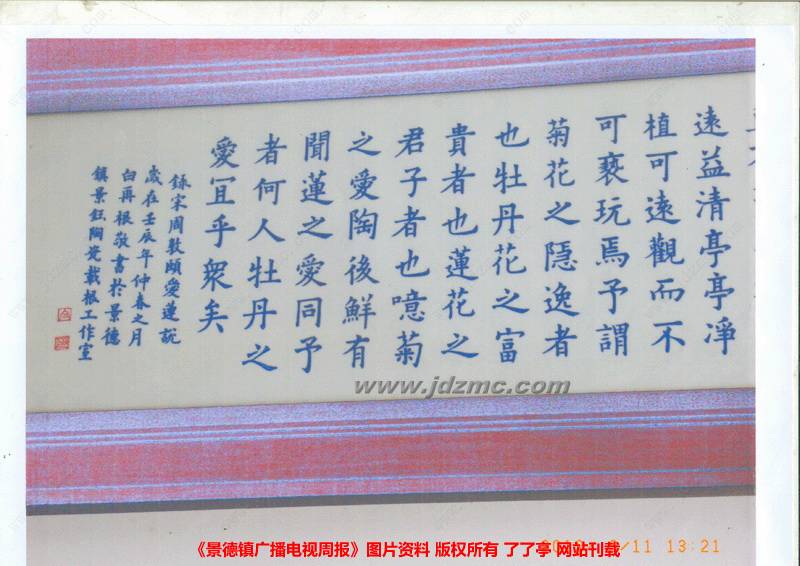 遠益清亭亭凈
植可遠觀而不
可褻玩焉予謂
菊花之隱逸者
也牡丹花之富
貴者也蓮花之
君子者也噫菊
之愛陶後鮮有
聞蓮之愛同予
者何人牡丹之
愛宜乎衆矣
錄宋周敦頤愛蓮説
歲在壬辰年仲春之月
白再根敬書於景德
鎮景鈺陶瓷載根工作室
www.jdzmc.com
11 13:21
《景德镇广播电视周报》图片资料 版权所有 了了亭 网站刊载